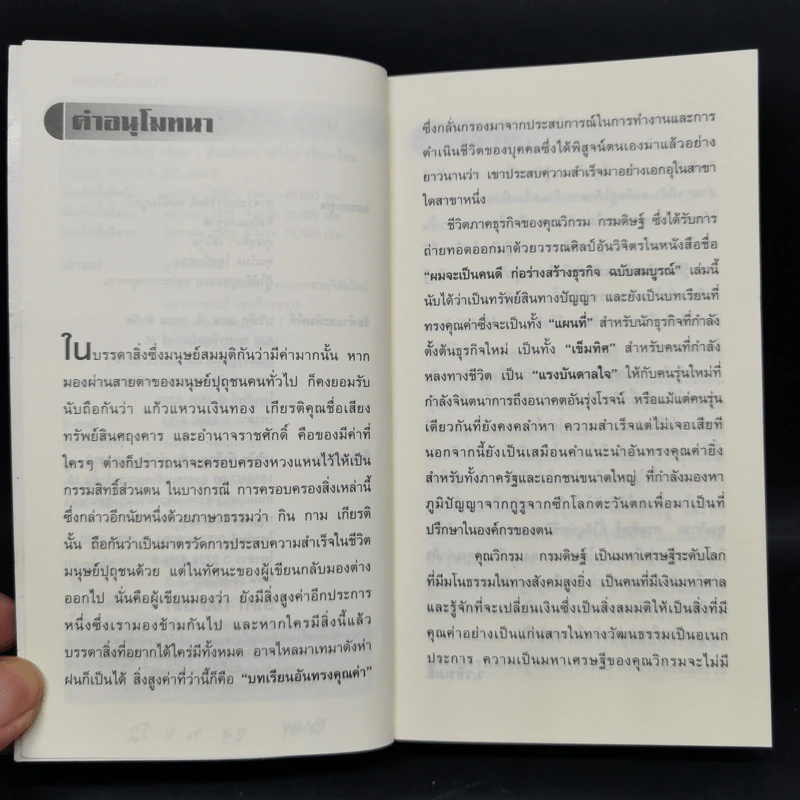 คำอนุโมทนา
ในบรรดาสิ่งซึ่งมนุษย์สมมุติกันว่ามีค่ามากนั้น หาก
มองผ่านสายตาของมนุษย์ปุถุชนคนทั่วไป ก็คงยอมรับ
นับถือกันว่า แก้วแหวนเงินทอง เกียรติคุณชื่อเสียง
ทรัพย์สินศฤงคาร และอำนาจราชศักดิ์ คือของมีค่าที่
ใครๆ ต่างก็ปรารถนาจะครอบครองหวงแหนไว้ให้เป็น
กรรมสิทธิ์ส่วนตน ในบางกรณี การครอบครองสิ่งเหล่านี้
ซึ่งกล่าวอีกนัยหนึ่งด้วยภาษาธรรมว่า กิน กาม เกียรติ
นั้น ถือกันว่าเป็นมาตรวัดการประสบความสำเร็จในชีวิต
มนุษย์ปุถุชนด้วย แต่ในทัศนะของผู้เขียนกลับมองต่าง
ออกไป นั่นคือผู้เขียนมองว่า ยังมีสิ่งสูงค่าอีกประการ
หนึ่งซึ่งเรามองข้ามกันไป และหากใครมีสิ่งนี้แล้ว
บรรดาสิ่งที่อยากได้ใคร่มีทั้งหมด อาจไหลมาเทมาดังห่า
ฝนก็เป็นได้ สิ่งสูงค่าที่ว่านี้ก็คือ “บทเรียนอันทรงคุณค่า”
ซึ่งกลั่นกรองมาจากประสบการณ์ในการทำงานและการ
ดำเนินชีวิตของบุคคลซึ่งได้พิสูจน์ตนเองมาแล้วอย่าง
ยาวนานว่า เขาประสบความสำเร็จมาอย่างเอกอุในสาขา
ใดสาขาหนึ่ง
ชีวิตภาคธุรกิจของคุณวิกรม กรมดิษฐ์ ซึ่งได้รับการ
ถ่ายทอดออกมาด้วยวรรณศิลป์อันวิจิตรในหนังสือชื่อ
“ผมจะเป็นคนดี ก่อร่างสร้างธุรกิจ ฉบับสมบูรณ์” เล่มนี้
นับได้ว่าเป็นทรัพย์สินทางปัญญา และยังเป็นบทเรียนที่
ทรงคุณค่าซึ่งจะเป็นทั้ง “แผนที่” สำหรับนักธุรกิจที่กำลัง
ตั้งต้นธุรกิจใหม่ เป็นทั้ง “เข็มทิศ” สำหรับคนที่กำลัง
หลงทางชีวิต เป็น “แรงบันดาลใจ” ให้กับคนรุ่นใหม่ที่
กำลังจินตนาการถึงอนาคตอันรุ่งโรจน์ หรือแม้แต่คนรุ่น
เดียวกันที่ยังคงคลำหา ความสำเร็จแต่ไม่เจอเสียที
นอกจากนี้ยังเป็นเสมือนคำแนะนำอันทรงคุณค่ายิ่ง
สำหรับทั้งภาครัฐและเอกชนขนาดใหญ่ ที่กำลังมองหา
ภูมิปัญญาจากกูรูจากซีกโลกตะวันตกเพื่อมาเป็นที่
ปรึกษาในองค์กรของตน
คุณวิกรม กรมดิษฐ์ เป็นมหาเศรษฐีระดับโลก
ที่มีมโนธรรมในทางสังคมสูงยิ่ง เป็นคนที่มีเงินมหาศาล
และรู้จักที่จะเปลี่ยนเงินซึ่งเป็นสิ่งสมมติให้เป็นสิ่งที่มี
คุณค่าอย่างเป็นแก่นสารในทางวัฒนธรรมเป็นอเนก
ประการ ความเป็นมหาเศรษฐีของคุณวิกรมจะไม่มี